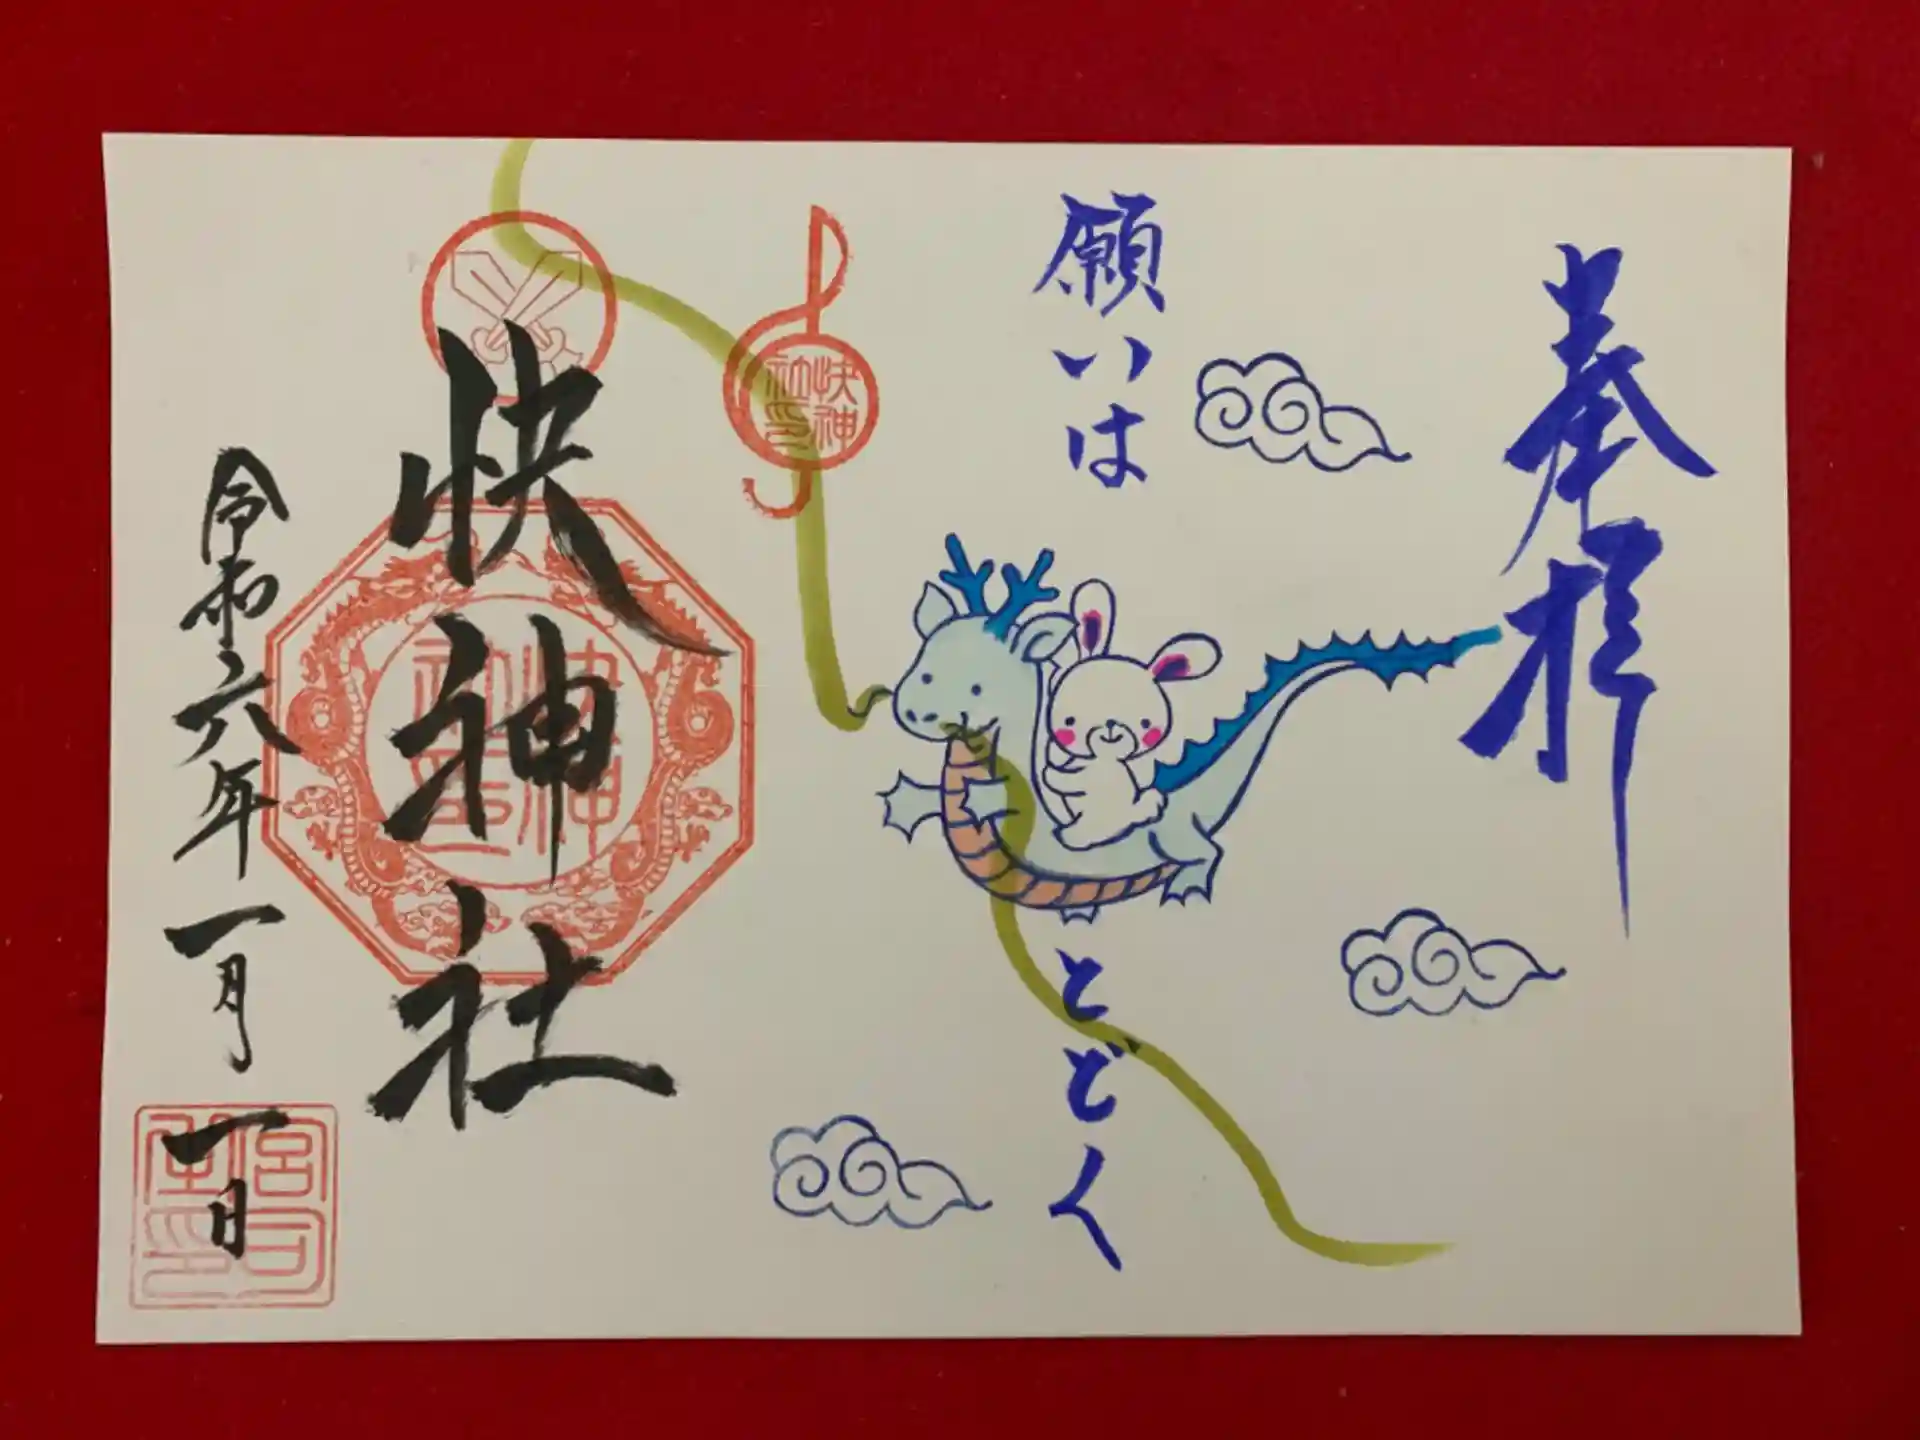 奉拝
願いは
とどく
快神社印
快神社
快神社印
令和六年一月一日
宮司之印